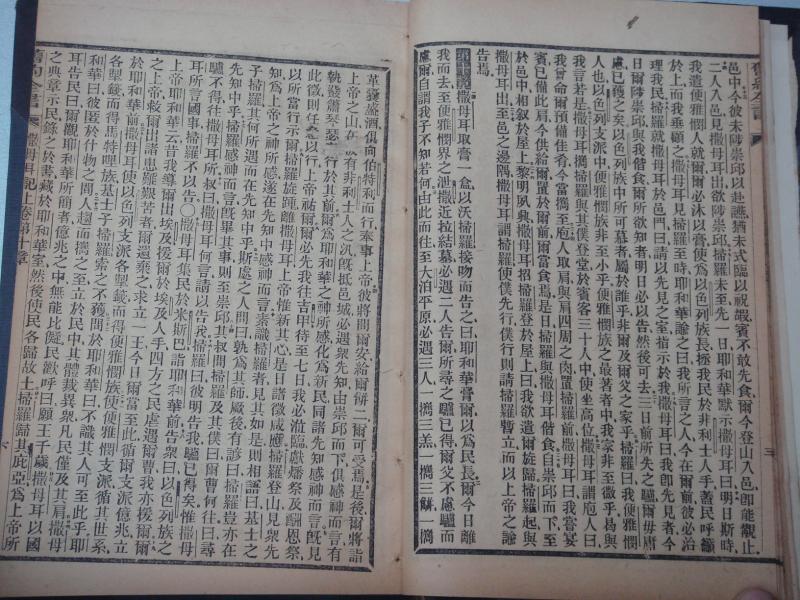 舊約全書
邑中今彼未陟崇邱以赴讌猶未式臨以祝嘏賓不敢先食爾今登山入邑卽能覯止
二人入邑見撒母耳出欲陟崇邱掃羅未至先一日耶和華默示撒母耳曰明日斯時
我遣便雅憫人就爾爾必沐以膏使爲以色列族長拯我民於非利士人手蓋民呼籲
於上而我垂顧之撒母耳見掃羅至時耶和華諭之曰我所言之人今在爾前彼必治
理我民掃羅就撒母耳於邑門曰請以先見之室指示於我撒母耳曰我卽先見者今
日爾陟崇邱與我偕食爾所欲知者明日必以告然後可去三日前所失之驢爾毋庸
慮已獲之矣以色列族中所可慕者屬於誰乎非爾及爾父之家乎掃羅曰我便雅憫
人也以色列支派中便雅憫族非至小乎便雅憫族之最著者中我家非至微乎曷與
我言若是撒母耳導掃羅與其僕登堂於賓客三十人中使坐高位撒母耳謂庖人曰
我曾命爾預備佳肴今當攜至庖人取肩與肩四周之肉置掃羅前撒母耳曰我嘗宴
賓已備此肩今供給爾置於爾前爾當食焉是日掃羅與撒母耳偕食自崇邱而下至
於邑中相叙於屋上黎明夙興撒母耳招掃羅登於屋上曰我欲遣爾旋歸掃羅起與
撒母耳出至邑之邊隅撒母耳謂掃羅使僕先行僕行則請掃羅暫立而以上帝之諭
告焉
第十章撒母耳取膏一盒以沃掃羅接吻而告之曰耶和華膏爾以爲民長爾今日離
我而去至便雅憫界之泄撒近拉結墓必遇二人告爾所尋之驢已得爾父不慮驢而
慮爾自謂我子不知若何由此而往至大泊平原必遇三人一攜三羔一攜三餅一攜
革囊盛酒俱向伯特利而行奉事上帝彼將問爾安給爾餅二爾可受焉是後爾將詣
上帝之山在彼有非利士人之汛旣抵邑城必遇衆先知由崇邱而下俱感神而言有
執鼗蕭琴瑟行於其前爾爲耶和華之神所感化爲新民同諸先知感神而言旣見
此徵則任行以行上帝祐爾爾必先我往吉甲待至七日我必涖臨獻燔祭及酬恩祭
以所當行示爾掃羅旋踵離撒母耳上帝惟新其心是日諸徵咸應掃羅登山見衆先
知遇之上帝之神所感遂在先知中感神而言素識掃羅者見其如是則相語曰基士之
子掃羅其何所遇而在先知中乎斯處之人問曰孰爲其師厥後有諺曰掃羅豈亦在
先知中乎掃羅感神而言旣畢其事則至崇邱其叔問掃羅及其僕曰爾曹何往曰尋
驢不得往撒母耳所叔曰撒母耳何言請以告我掃羅曰彼明告我驢已得矣惟撒母
耳所言國事掃羅不以告○撒母耳集民於米斯巴詣耶和華前告衆曰以色列族之
上帝耶和華云昔我導爾出埃及援爾於埃及人手四方之民虐遇爾曹我亦援爾爾
之上帝救爾出諸患難艱苦者爾還棄之求立一王今日爾當至此循爾支派億兆立
於耶和華上帝之前撒母耳使以色列支派各掣籤而得便雅憫族使便雅憫支派循其世系
各掣籤而得馬特哩族基士子掃羅索之不獲問於耶和華曰不識其人可至此乎耶
和華曰彼匿於什物之間人趨而攜之至立於民中其體裁異衆凡民僅及其肩撒母
耳告民曰爾觀耶和華所簡者億兆之中無能比儗民歡呼曰願王千歲撒母耳以國
之典章示民錄之於書藏於耶和華室然後使民各歸故土掃羅歸其庇亞爲上帝所
舊約全書 撒母耳記上卷 第十章